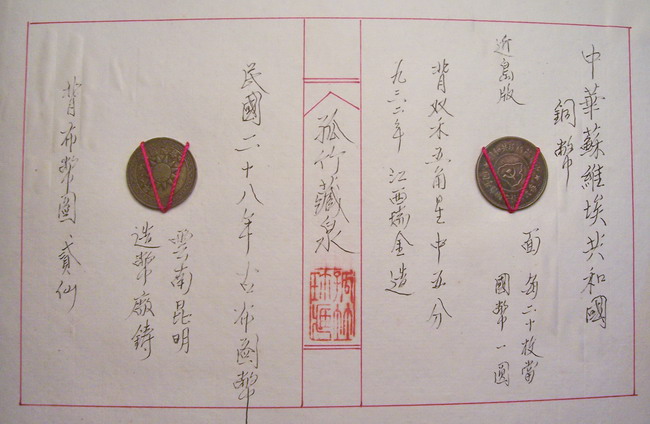 中華蘇維埃共和國
銅幣
面 每二十枚當
國幣一圓
近島版
背双禾五角星中五分
九三二年 江西瑞金造
孤竹藏泉
民國二十八年古布圖幣
雲南昆明
造幣廠鋳
背布幣圖、貳仙